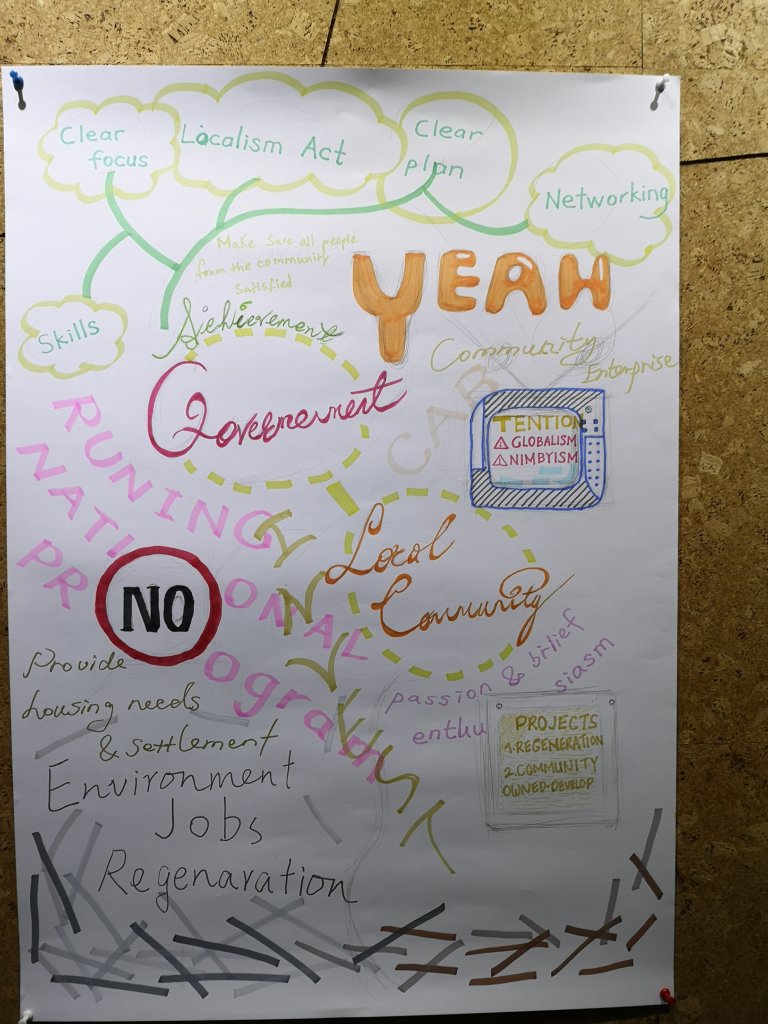 Clear
focus
Localism Act
Clear
plan
Networking
Skills
Make Sure all people
from the community
satisfied
Achievements
YEAH
Government
Community
Enterprise
CAB
TENTION
GLOBALISM
NIMBYISM
RUNING
NATIONAL
PRogram
NO
Local
Community
Provide
housing needs
& settlement
passion & brlief
enthusiasm
PROJECTS
1.REGENERATION
2.COMMUNITY
OWNED-DEVELOP
Environment
Jobs
Regenaration